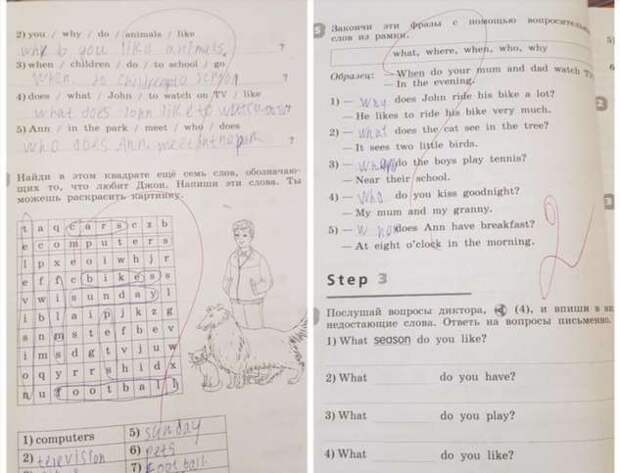 2) you / why / do / animals / like
why do you like animals ?
3) when / children / do / to school / go
when to school ?
4) does / what / John / to watch on TV / like
what does John like to
5) Ann / in the park / meet / who / does
who does Ann meet ?
Найди в этом квадрате ещё семь слов, обозначаю-
щих то, что любит Джон. Напиши эти слова. Ты
можешь раскрасить картинку.
t a q c a r s c z b
e c o m p u t e r s
l p x e o i w h j r
e f f c b i k e s s
v w i s u n d a y l
i b l a i p j k z g
s n m s t e f b e v
i m s d g t v j u w
o q y r r s h i d x
n u f o o t b a l l
1) computers
2) television
5) sunday
6) pets
7) football
5 Закончи эти фразы с помощью вопросительных
слов из рамки.
what, where, when, who, why
Образец: — When do your mum and dad watch TV
— In the evening.
1) — why does John ride his bike a lot?
— He likes to ride his bike very much.
2) — what does the cat see in the tree?
— It sees two little birds.
3) — do the boys play tennis?
— Near their school.
4) — who do you kiss goodnight?
— My mum and my granny.
5) — does Ann have breakfast?
— At eight o'clock in the morning.
2
Step 3
Послушай вопросы диктора, (4), и впиши в
недостающие слова. Ответь на вопросы письменно.
1) What season do you like?
2) What do you have?
3) What do you play?
4) What do you like?
5)
2
3